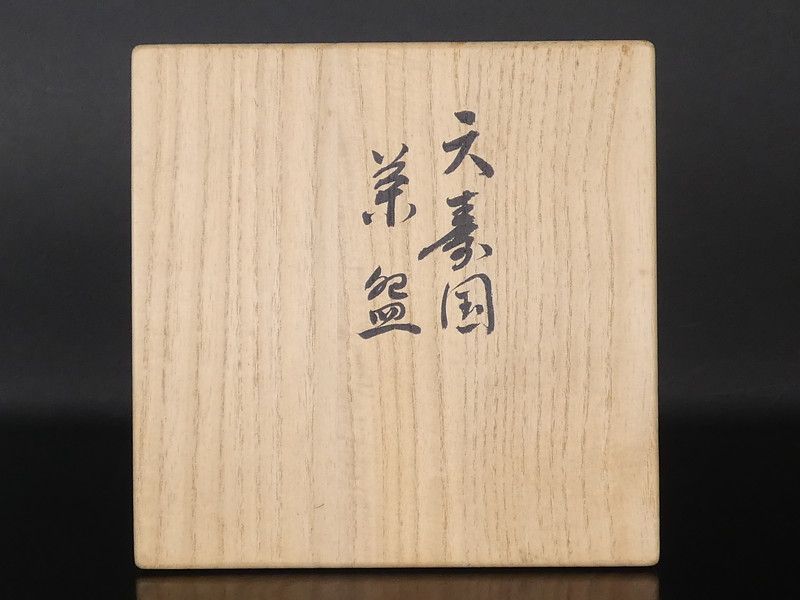 天寿国
茶盌